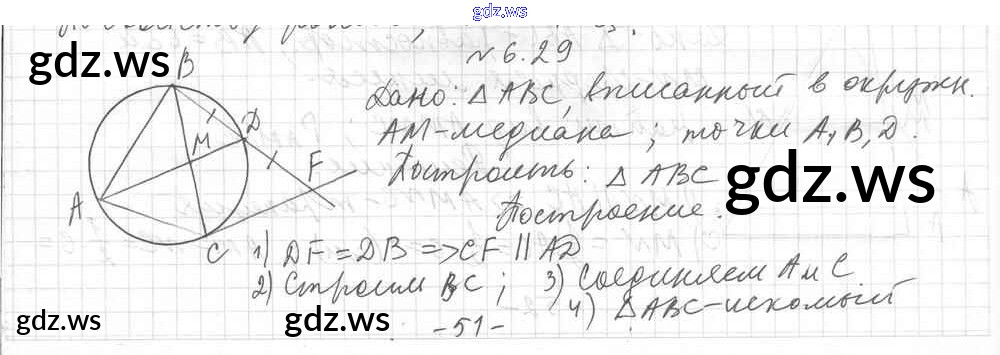 gdz.ws
N 6.29
gdz.ws
B
Дано: △ABC, вписанный в окружн.
AM-медиана; точки A, B, D.
D
M
F
Построить: △ABC
gdz.ws
A
Построение.
C
1) DF = DB => CF || AD
2) Строим BC; 3) Соединяем A и C
4) △ABC-искомый
gdz.ws
gdz.ws
-51-